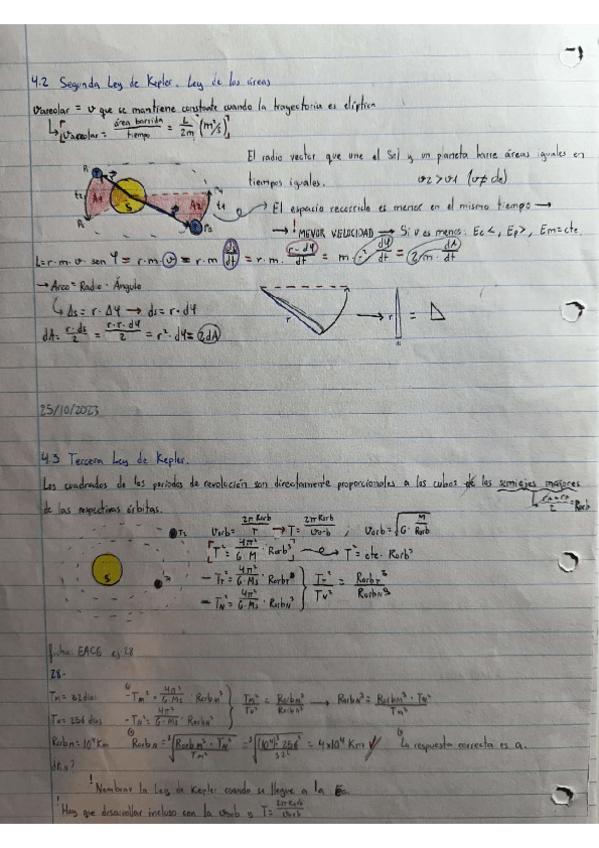 4.2 Segunda Ley de Kepler. Ley de las áreas
Vareolar = v que se mantiene constante cuando la trayectoria es elíptica
Vareolar = área barrida / tiempo = L / 2m (m²/s)
El radio vector que une el Sol y un planeta barre áreas iguales en
tiempos iguales. v2 > v1 (v≠cte)
A1 S A2 t2 t1
→ El espacio recorrido es menor en el mismo tiempo →
→ ! MENOR VELOCIDAD → Si v es menor: Ec<, Ep>, Em=cte.
L= r·m·v·sen φ = r·m·v = r·m ds/dt = r·m· r·dφ/dt = m·r² dφ/dt = 2m· dA/dt
→ Arco = Radio · Ángulo
Δs = r·Δφ → ds = r·dφ
r → r =
dA = r·ds / 2 = r·r·dφ / 2 = r²·dφ = 2dA
25/10/2023
4.3 Tercera Ley de Kepler.
Los cuadrados de los periodos de revolución son directamente proporcionales a los cubos de los semiejes mayores
de las respectivas órbitas.
Vorb = 2π Rorb / T → T = 2π Rorb / Vorb ; Vorb = √G· M / Rorb
T² = 4π² / G·M · Rorb³ → T² = cte · Rorb³
S
- TT² = 4π² / G·Ms · RorbT³
- TN² = 4π² / G·Ms · RorbN³
ficha: EAC6 ej 28
28-
- Tm² = 4π² / G·Ms · Rorbm³
TN = 256 días - TN² = 4π² / G·Ms · RorbN³
→ RorbN³ = Rorbm³ · TN² / Tm²
Rorbm = 10⁴ Km RorbN = ³√Rorbm³ · TN² / Tm² = ³√(10⁴)³ · 256² / 32² = 4×10⁴ Km ✓ La respuesta correcta es a.
! Nombrar la Ley de Kepler cuando se llegue a la Ec.
! Hay que desarrollar incluso con la Vorb y T = 2π Rorb / Vorb